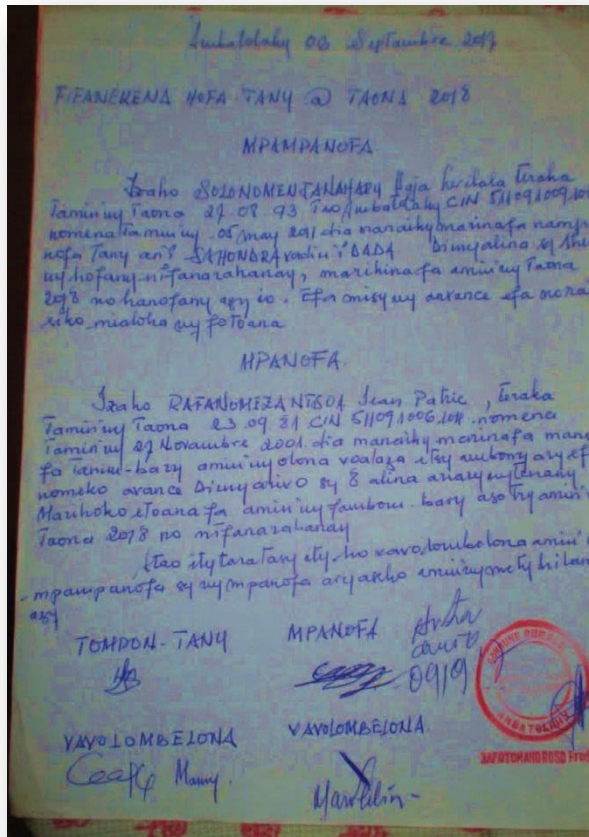 Ambatolahy 06 Septambre 2017
FIFANEKENA HOFA-TANY @ TAONA 2018
MPAMPANOFA
Izaho SOLONOMENJANAHARY teraka
Tamin'ny Taona 27.08.93 Tao Ambatolahy CIN
nomena Tamin'ny 05 may 2011 dia manaiky marina fa nampa
nofa Tany an'i SAHONDRA vadin'i DADA Dimy alina sy
ny hofany nifanarahanay, marihina fa amin'ny Taona
2018 no hanofany azy io. Efa misy ny avance efa noray
siko mialoha ny fotoana
MPANOFA
Izaho RAFANOMEZANTSOA Jean Patric, teraka
Tamin'ny Taona 23 09 81 CIN nomena
Tamin'ny 27 Novambre 2001 dia manaiky marina fa mano
fa Tanim-bary amin'ny olona voalaza etsy ambony ary efa
nomeko avance Dimy arivo sy 8 alina ariary
Marihoko etoana fa amin'ny famboly. bary
Taona 2018 no nifanarahanay
Atao ity taratasy ity ho vavolombelona amin'ny
mpampanofa sy ny mpanofa
azy
TOMPON-TANY MPANOFA
09/9
VAVOLOMBELONA VAVOLOMBELONA
COMMUNE RURALE
AMBATOLAHY